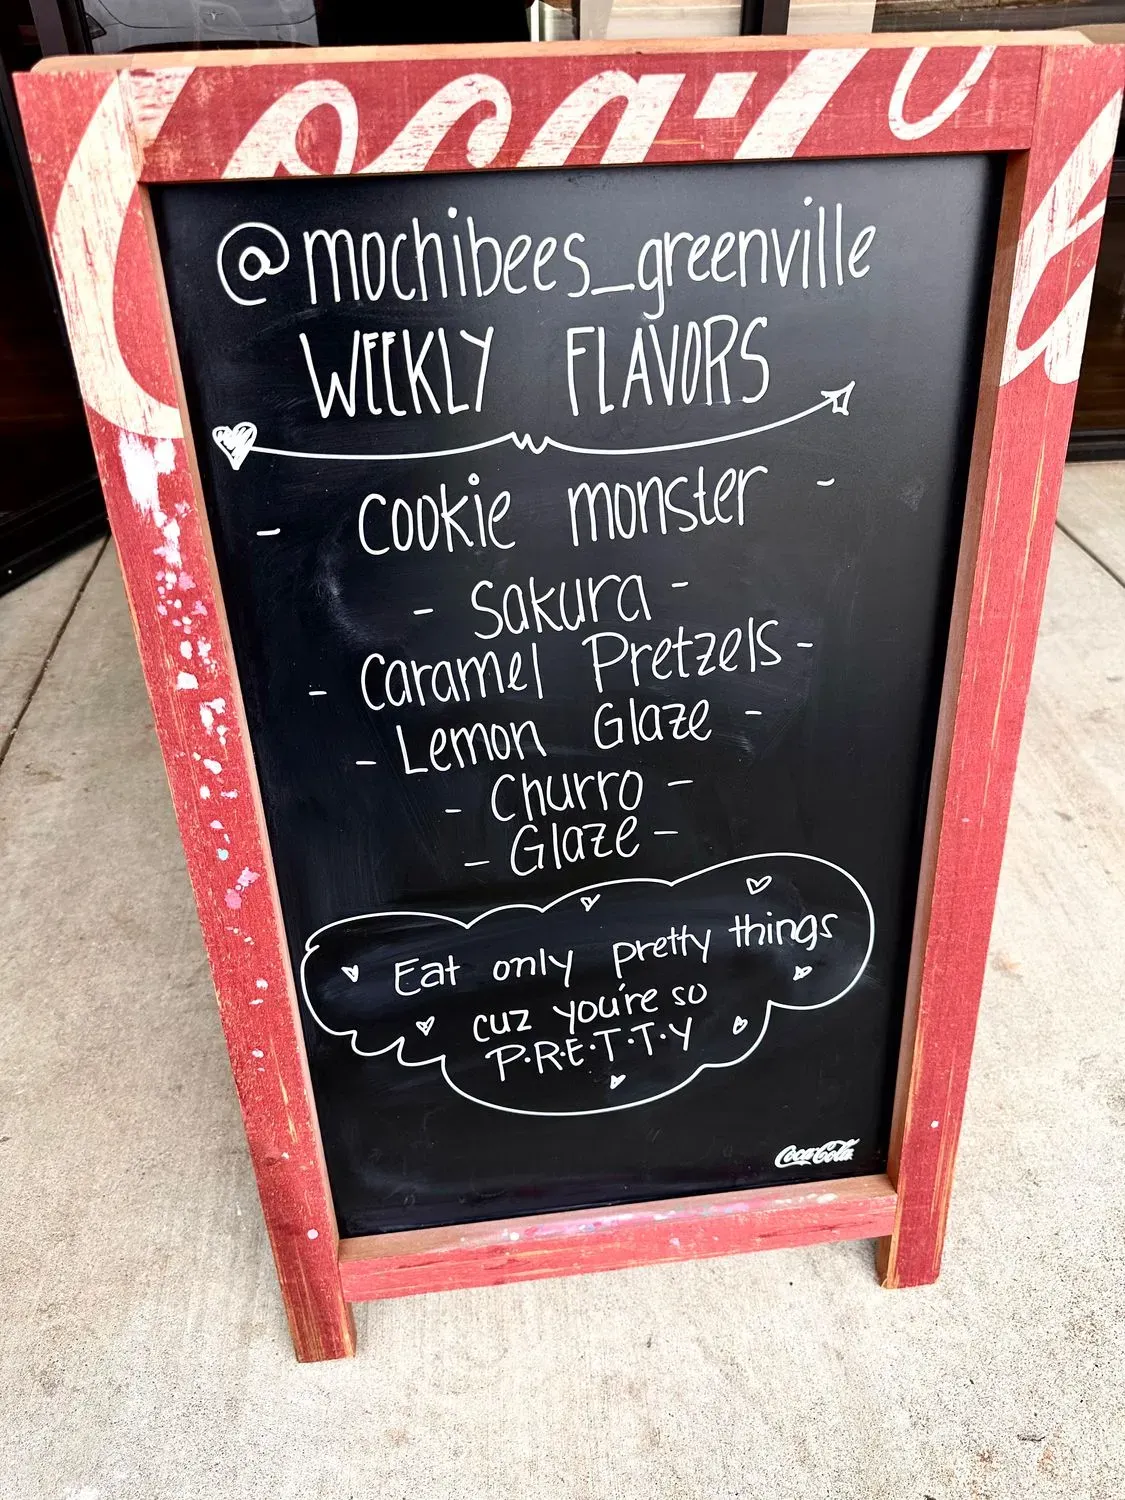 Coca-Cola
@mochibees_greenville
WEEKLY FLAVORS
- Cookie monster -
- Sakura -
- Caramel Pretzels -
- Lemon Glaze -
- Churro -
- Glaze -
Eat only pretty things
cuz you're so
P.R.E.T.T.Y
Coca-Cola